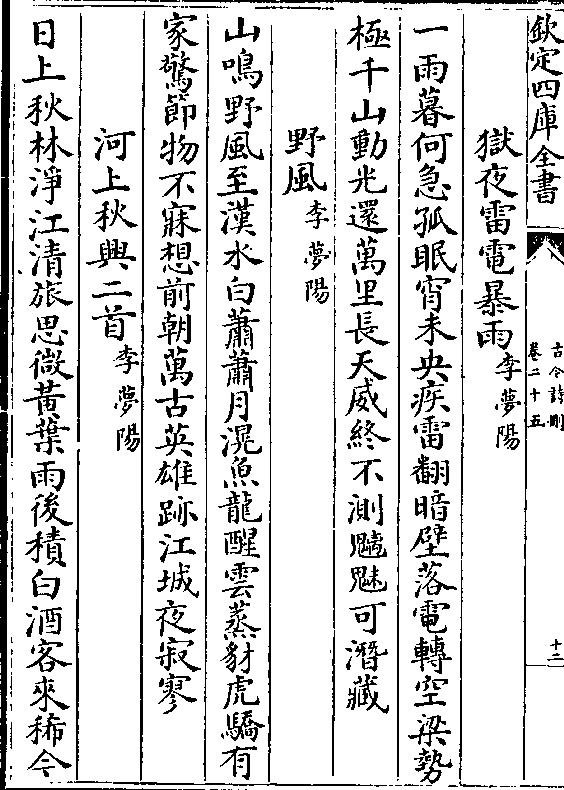 欽定四庫全書
古今詩刪
卷二十五
十二
獄夜雷電暴雨 李夢陽
一雨暮何急孤眠宵未央疾雷翻暗壁落電轉空梁勢
極千山動光還萬里長天威終不測魑魅可潛藏
野風 李夢陽
山鳴野風至漢水白蕭蕭月滉魚龍醒雲蒸豺虎驕有
家驚節物不寐想前朝萬古英雄跡江城夜寂寥
河上秋興二首 李夢陽
日上秋林淨江清旅思微黃葉雨後積白酒客來稀今